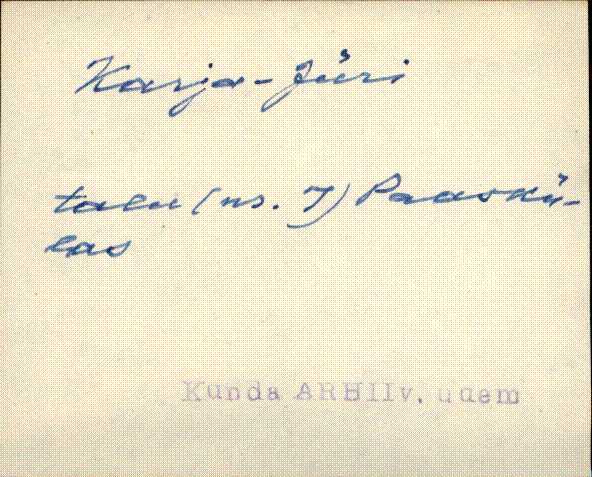 Karja-Jüri
talu (nr. 7) Paaskü-
las
Kunda ARHIIv, uuem